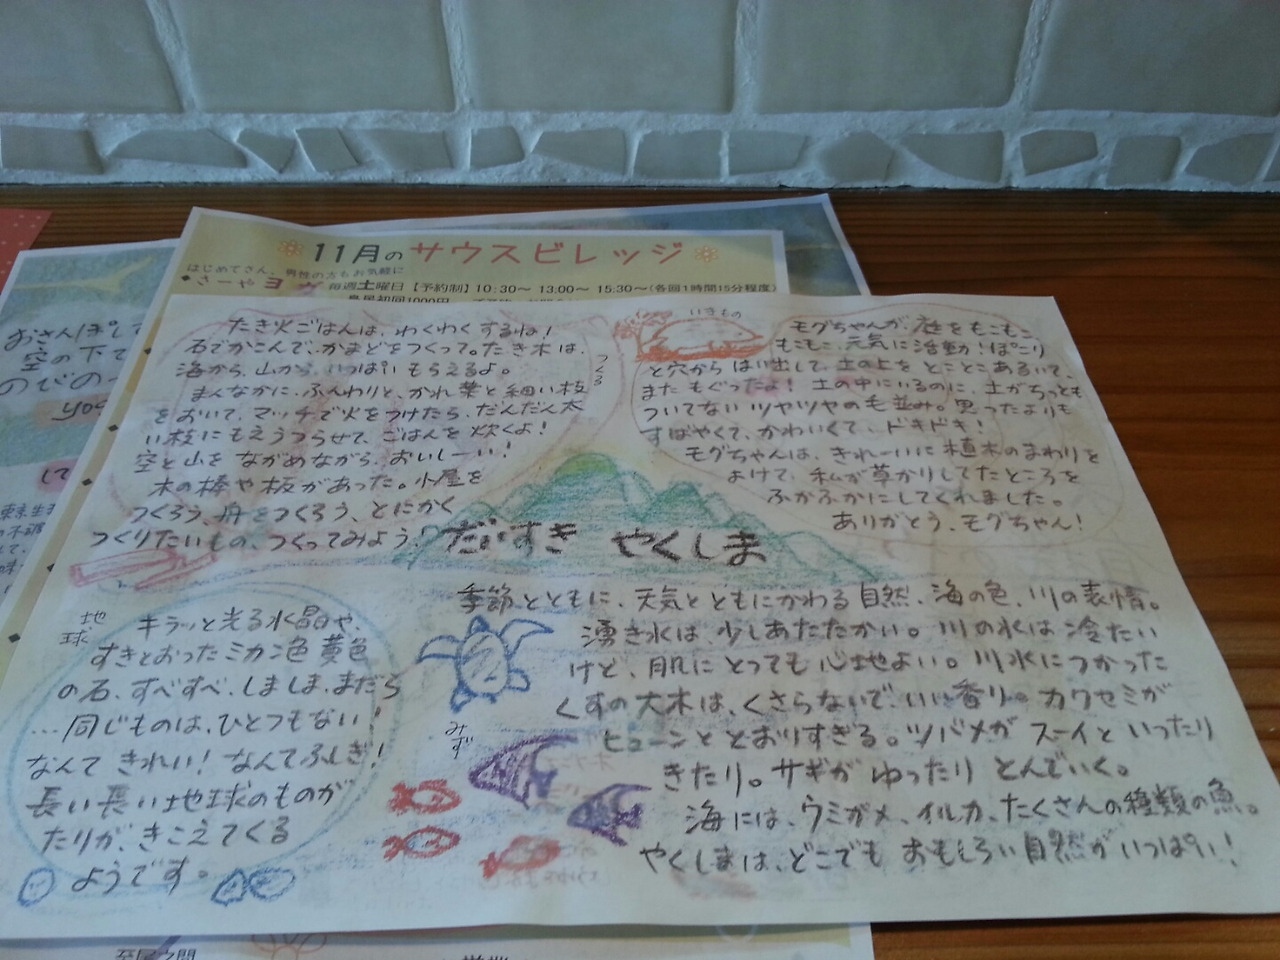 11月のサウスビレッジ
はじめてさん、男性の方もお気軽に
さーやヨガ 毎週土曜日【予約制】10:30～ 13:00～ 15:30～(各回1時間15分程度)
おさんぽして
空の下で
のびの
yog
たき火ごはんは、わくわくするね!
石でかこんで、かまどをつくって。たき木は、
海から、山から、いっぱいもらえるよ。
まんなかに、ふんわりと、かれ葉と細い枝
をおいて、マッチで火をつけたら、だんだん太
い枝にもえうつらせて、ごはんを炊くよ!
空と山をながめながら、おいしーい!
木の棒や板があった。小屋を
つくろう、舟をつくろう、とにかく
つくりたいもの、つくってみよう!
つくる
いきもの
モグちゃんが、庭をもこもこ
もこもこ、元気に活動!ぽこり
と穴からはい出して、土の上をとことこあるいて、
またもぐったよ!土の中にいるのに、土がちっとも
ついてないツヤツヤの毛並み。思ったよりも
すばやくて、かわいくて、ドキドキ!
モグちゃんは、きれーいに植木のまわりを
よけて、私が草かりしてたところを
ふかふかにしてくれました。
ありがとう、モグちゃん!
だいすき やくしま
地球
キラッと光る水晶や、
すきとおったミカン色黄色
の石、すべすべ、しましま、まだら
…同じものは、ひとつもない!
なんてきれい!なんてふしぎ!
長い長い地球のものが
たりが、きこえてくる
ようです。
みず
季節とともに、天気とともにかわる自然、海の色、川の表情。
湧き水は、少しあたたかい。川の水は冷たい
けど、肌にとっても心地よい。川水につかった
くすの大木は、くさらないで、いい香り。カワセミが
ヒューンととおりすぎる。ツバメがスーイといったり
きたり。サギがゆったりとんでいく。
海には、ウミガメ、イルカ、たくさんの種類の魚。
やくしまは、どこでもおもしろい自然がいっぱい!